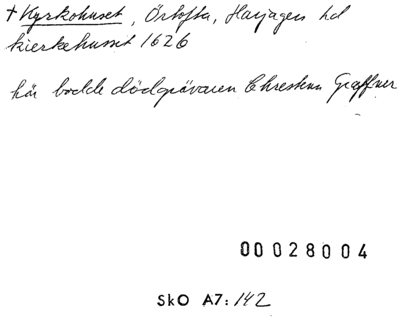 † Kyrkohuset, Örtofta, Harjagers hd
kierkehusset 1626
här bodde dödgrävaren Chresten Graffuer
00028004
SkO A7: 142